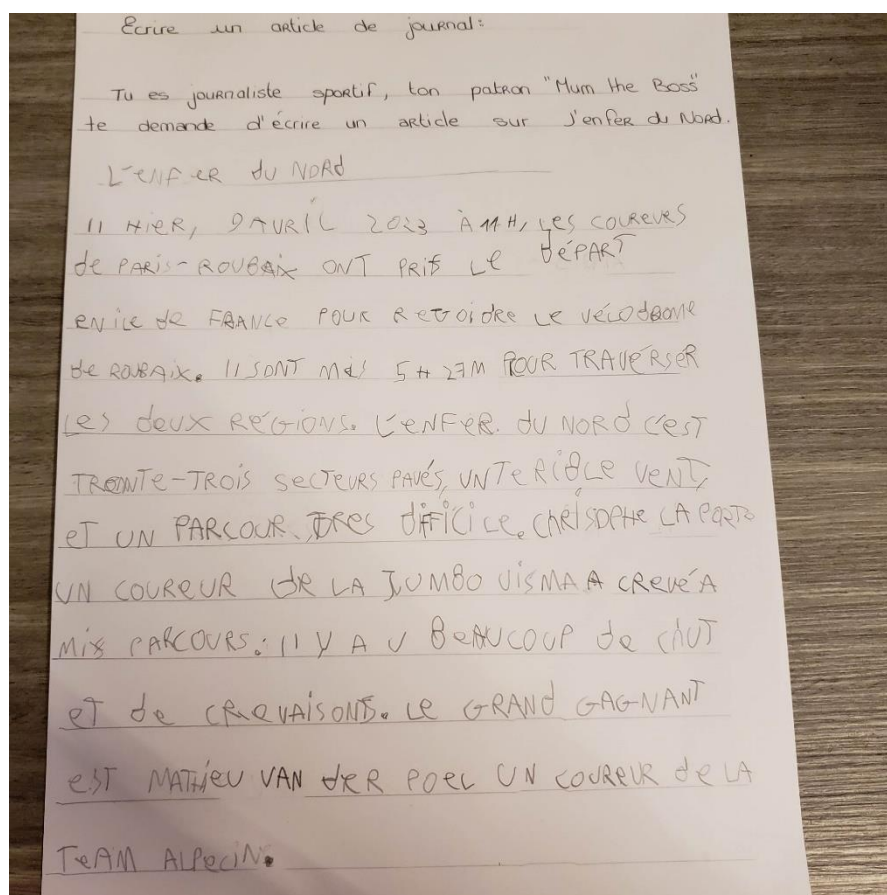 Ecrire un article de journal:
Tu es journaliste sportif, ton patron "Mum the Boss"
te demande d'écrire un article sur j'enfer du Nord.
L'ENFER dU NORd
11 HieR, 9 AVRIL 2023 À 11H, Les COUREURS
de PARIS-ROUBAix ONT PRis Le dÉPART
eN iLe de FRANCe POUR ReGoidRe Le VÉLOdROMe
de ROUBAix. ILS SONT Mis 5H27M POUR TRAVERSER
Les deUX RÉGIONS. L'eNFeR dU NORd C'eST
TReNTe-TROis SecTeURS PAVÉS, UN TeRiBLe VeNT,
eT UN PARCOUR TRes diFFiCiLe. CHRiSOPHe LA PORTe
UN COUReUR de LA JUMBO ViSMA A CReVÉ A
Mis PARCOURS. IL Y A U BeAUCOUP de CHUT
eT de CReVAiSONS. Le GRANd GAGNANT
eST MATHieU VAN deR POeL UN COUReUR de LA
TeAM ALPeCiN.